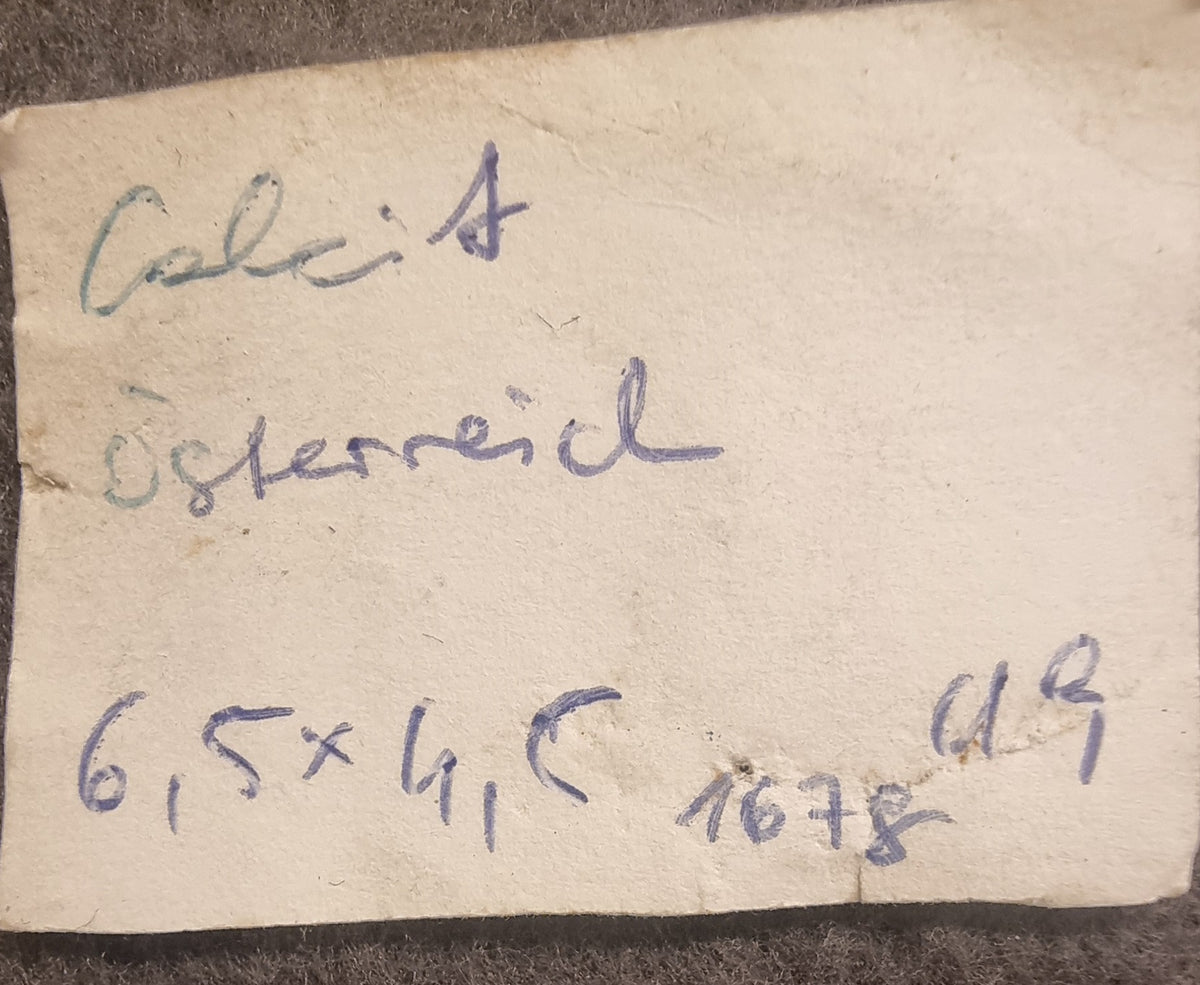 Calcit
Österreich
6,5 x 4,5 167g